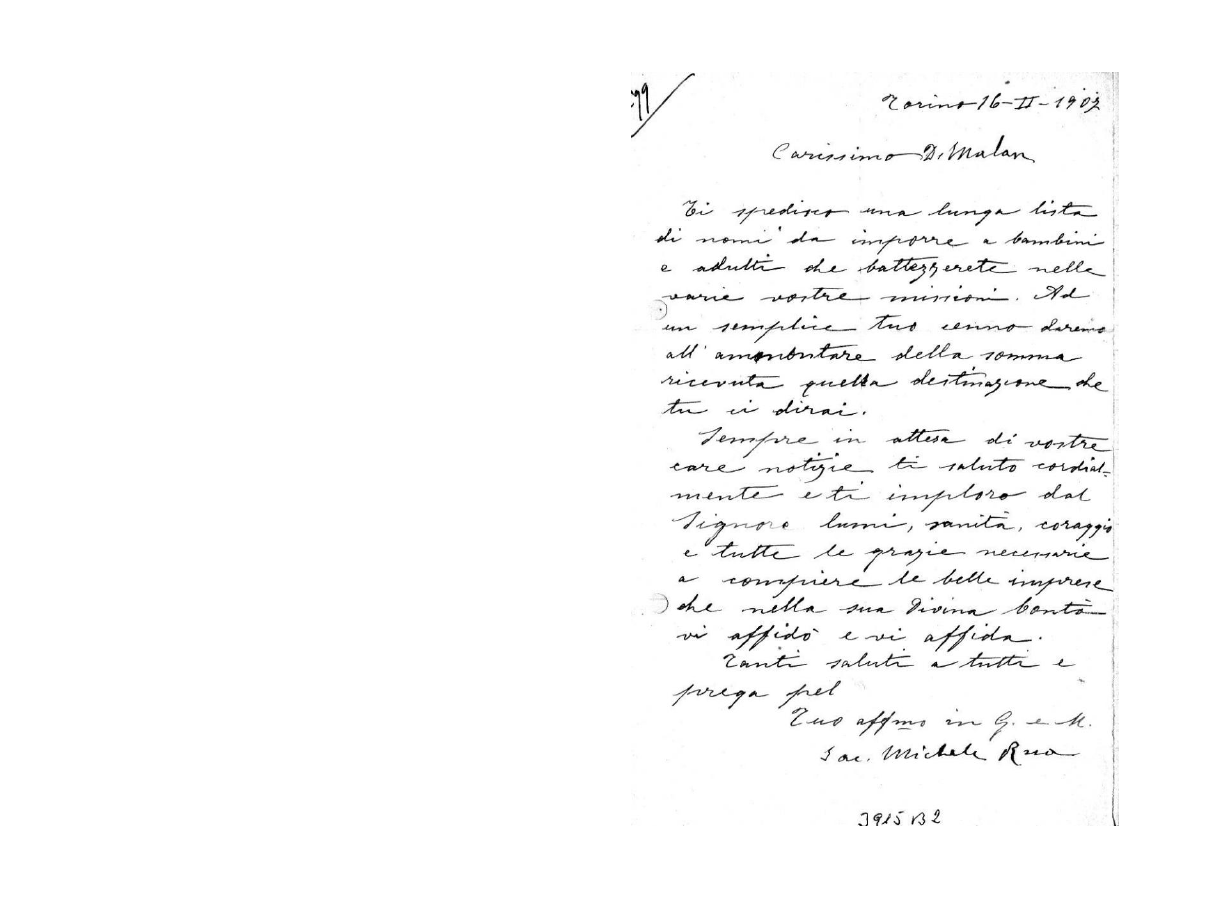 99
Torino 16-II-1902
Carissimo D. Malan
Ti spedisco una lunga lista
di nomi da imporre a bambini
e adulti che battezzerete nelle
varie vostre missioni. Ad
un semplice tuo cenno daremo
all'ammontare della somma
ricevuta quella destinazione che
tu ci dirai.
Sempre in attesa di vostre
care notizie ti saluto cordial-
mente e ti imploro dal
Signore lumi, sanità, coraggio
e tutte le grazie necessarie
a compiere le belle imprese
che nella sua Divina bontà
vi affidò e vi affida.
Tanti saluti a tutti e
prega pel
Tuo affmo in G. e M.
Sac. Michele Rua
3915 B2